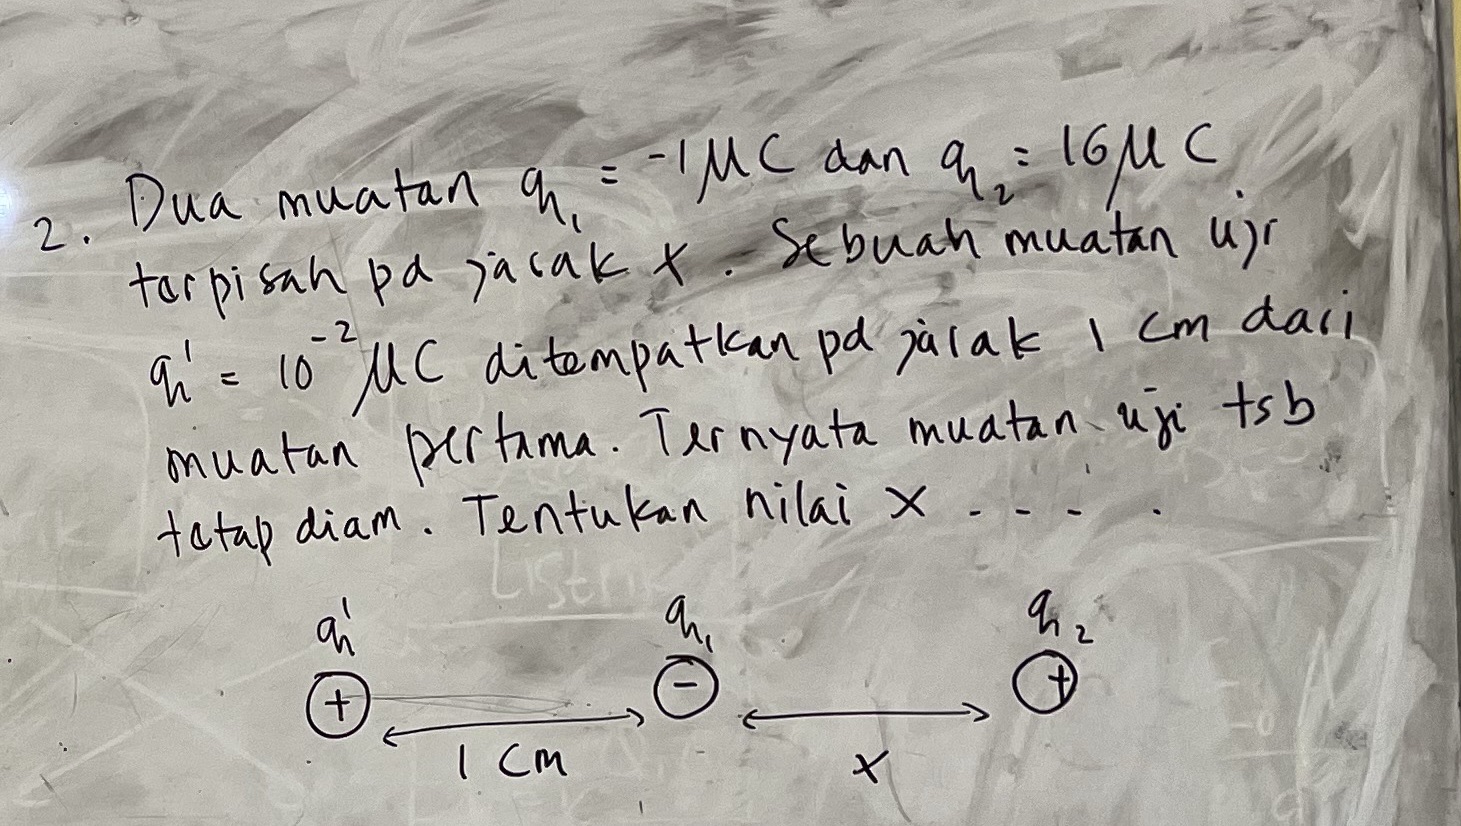 2. Dua muatan q₁ = -1 μC dan q₂ = 16 μC
terpisah pd jarak x. Sebuah muatan uji
q' = 10⁻² μC ditempatkan pd jarak 1 cm dari
muatan pertama. Ternyata muatan uji tsb
tetap diam. Tentukan nilai x - - - .
q' q₁ q₂
+ - +
1 cm x